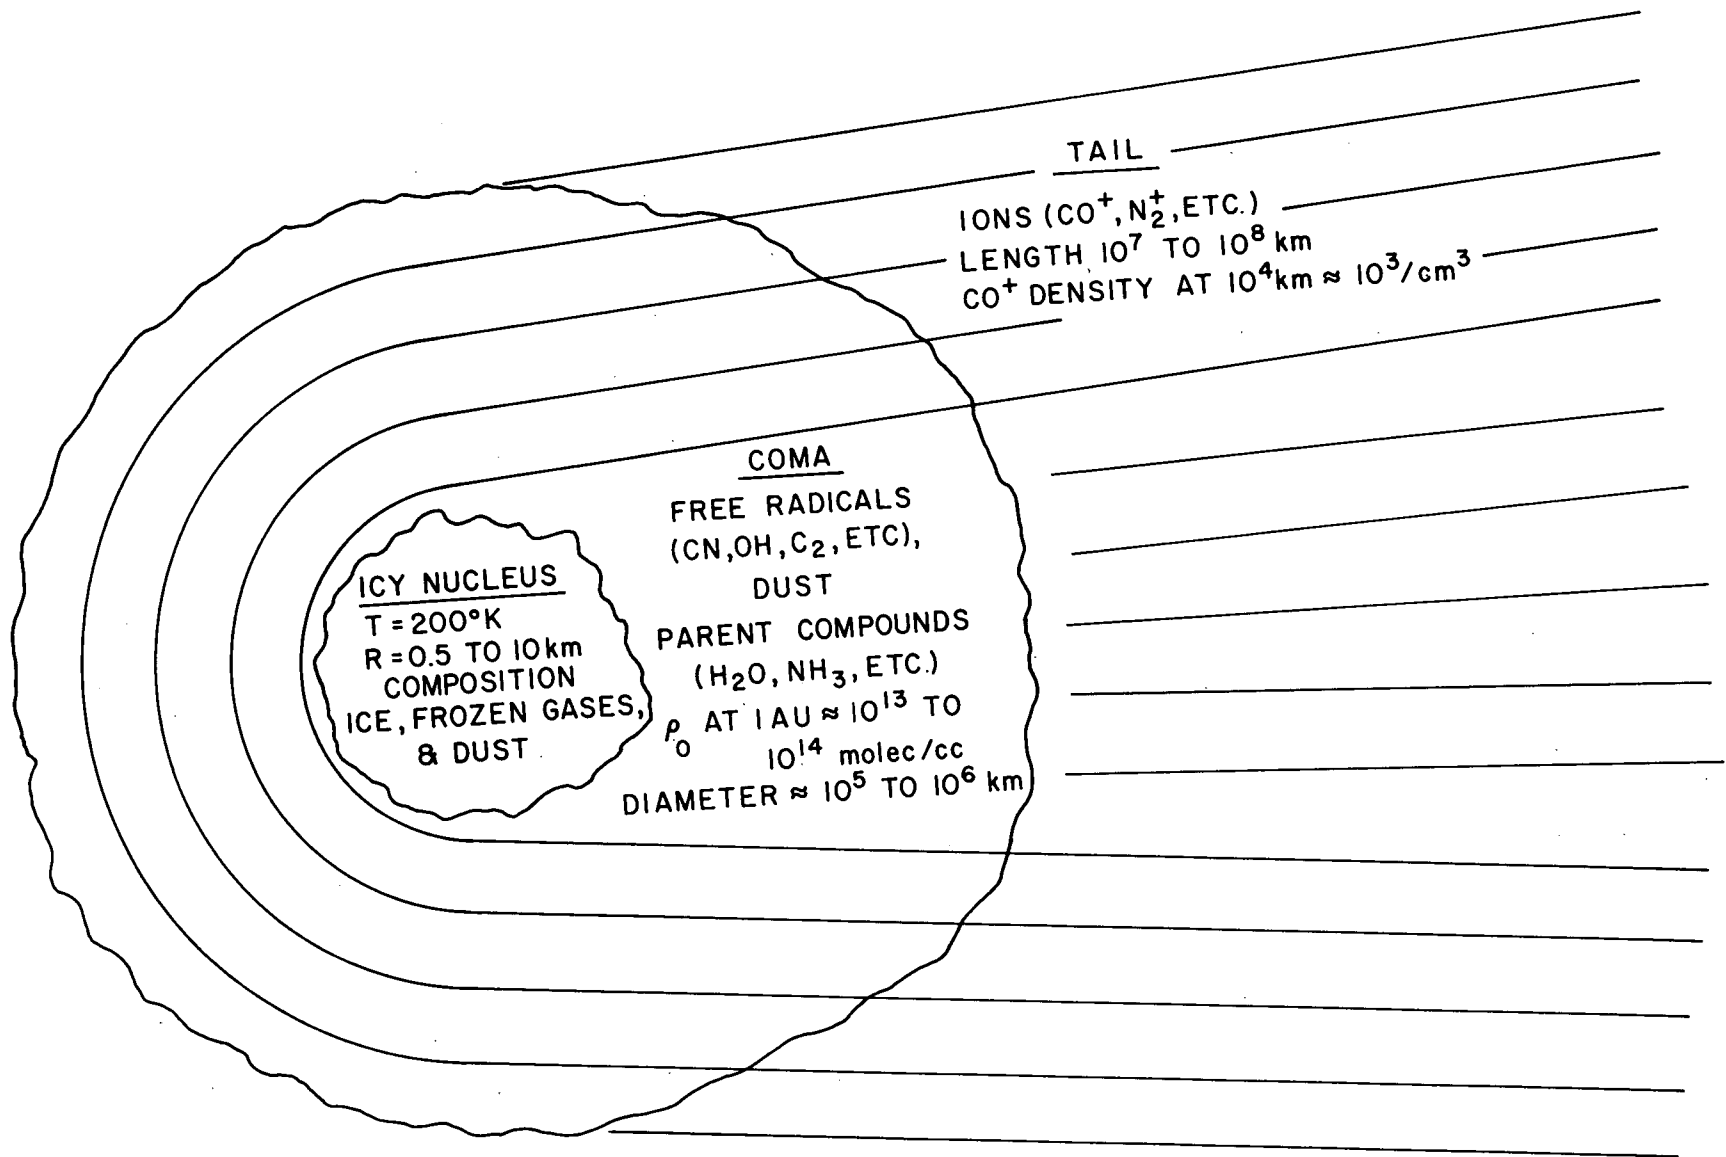 TAIL
IONS (CO⁺, N₂⁺, ETC.)
LENGTH 10⁷ TO 10⁸ km
CO⁺ DENSITY AT 10⁴km ≈ 10³/cm³
COMA
FREE RADICALS
(CN,OH,C₂,ETC),
DUST
PARENT COMPOUNDS
(H₂O, NH₃, ETC.)
ρ₀ AT 1AU ≈ 10¹³ TO
10¹⁴ molec/cc
DIAMETER ≈ 10⁵ TO 10⁶ km
ICY NUCLEUS
T = 200°K
R = 0.5 TO 10km
COMPOSITION
ICE, FROZEN GASES,
& DUST